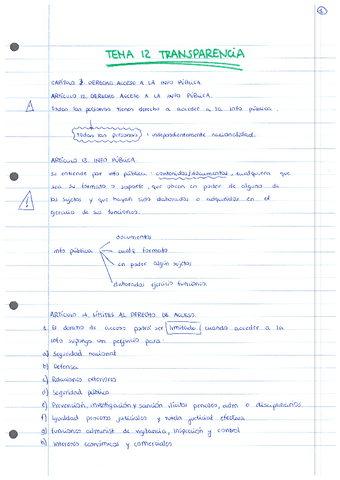 1
TEMA 12 TRANSPARENCIA
CAPÍTULO 3. DERECHO ACCESO A LA INFO PÚBLICA.
ARTÍCULO 12. DERECHO ACCESO A LA INFO PÚBLICA.
Todas las personas tienen derecho a acceder a la info pública.
todas las personas = independientemente nacionalidad.
ARTÍCULO 13. INFO PÚBLICA.
Se entiende por info pública: contenidos/documentos, cualquiera que
sea su formato o soporte, que obren en poder de alguno de
los sujetos y que hayan sido elaborados o adquiridos en el
ejercicio de sus funciones.
documentos
info pública
cualq formato
en poder algún sujetos
elaborados ejercicio funciones.
ARTÍCULO 14. LÍMITES AL DERECHO DE ACCESO.
1. El derecho de acceso podrá ser limitado cuando acceder a la
info suponga un perjuicio para:
a) Seguridad nacional
b) Defensa
c) Relaciones exteriores
d) Seguridad pública
e) Prevención, investigación y sanción ilícitos penales, adm o disciplinarios
f) Igualdad procesos judiciales y tutela judicial efectiva
g) Funciones administ. de vigilancia, inspección y control
h) Intereses económicos y comerciales